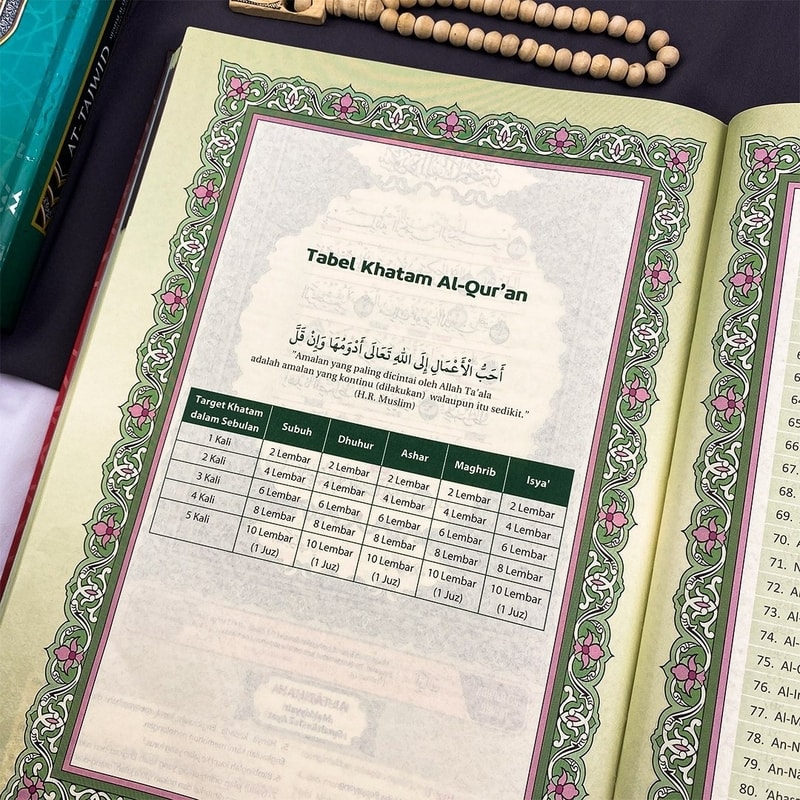 AT-TAJWID
Tabel Khatam Al-Qur'an
أَحَبُّ الْأَعْمَالِ إِلَى اللهِ تَعَالَى أَدْوَمُهَا وَإِنْ قَلَّ
"Amalan yang paling dicintai oleh Allah Ta'ala
adalah amalan yang kontinu (dilakukan) walaupun itu sedikit."
(H.R. Muslim)
Target Khatam dalam Sebulan Subuh Dhuhur Ashar Maghrib Isya'
1 Kali 2 Lembar 2 Lembar 2 Lembar 2 Lembar 2 Lembar
2 Kali 4 Lembar 4 Lembar 4 Lembar 4 Lembar 4 Lembar
3 Kali 6 Lembar 6 Lembar 6 Lembar 6 Lembar 6 Lembar
4 Kali 8 Lembar 8 Lembar 8 Lembar 8 Lembar 8 Lembar
5 Kali 10 Lembar 10 Lembar 10 Lembar 10 Lembar 10 Lembar
(1 Juz) (1 Juz) (1 Juz) (1 Juz) (1 Juz)
66.
67.
68.
69.
70.
71.
72.
73. Al-
74. Al-
75. Al-
76. Al-
77. Al-M
78. An-N
79. An-Na
80. 'Abasa